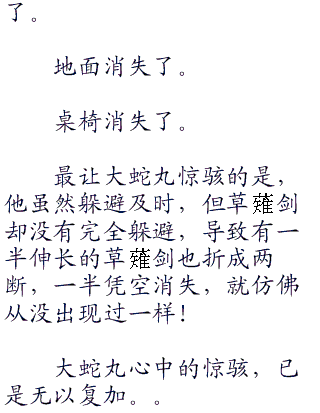 了。
地面消失了。
桌椅消失了。
最让大蛇丸惊骇的是，
他虽然躲避及时，但草薙剑
却没有完全躲避，导致有一
半伸长的草薙剑也折成两
断，一半凭空消失，就仿佛
从没出现过一样！
大蛇丸心中的惊骇，已
是无以复加。。